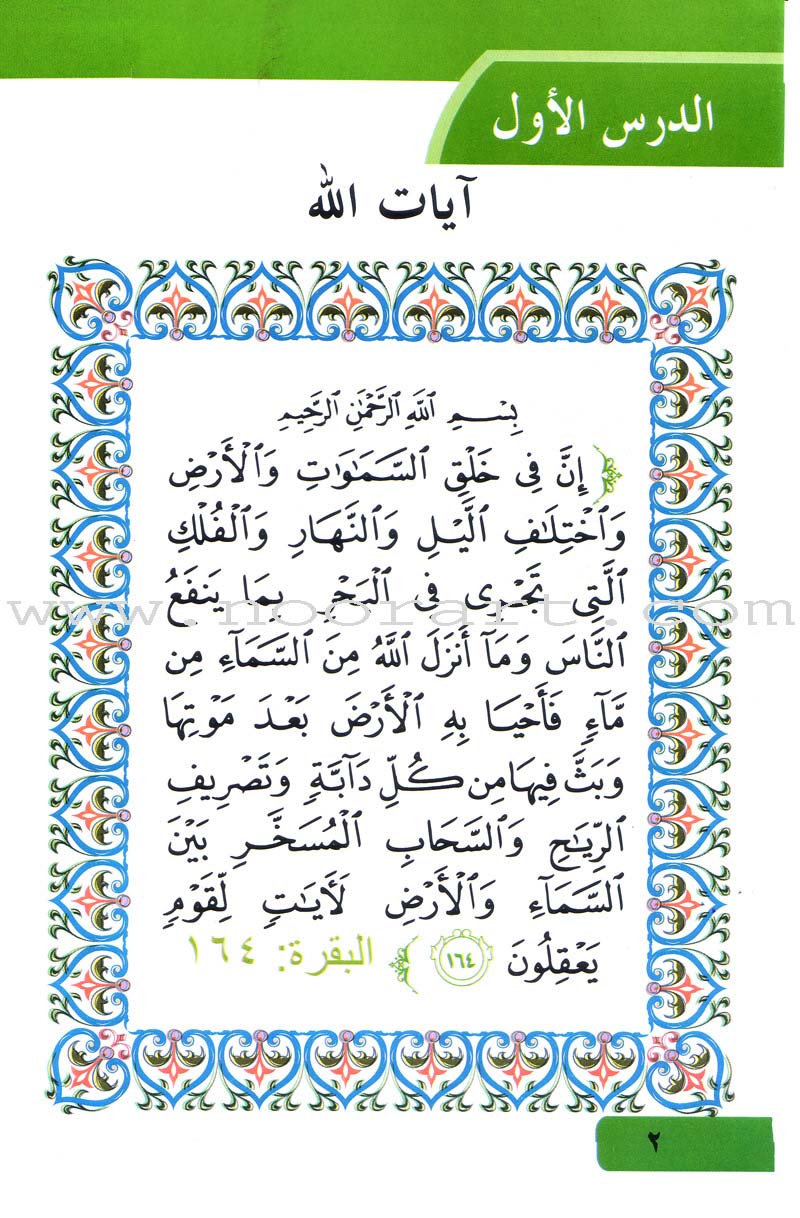 الدرس الأول
آيات الله
بِسْمِ ٱللَّهِ ٱلرَّحْمَٰنِ ٱلرَّحِيمِ
﴿ إِنَّ فِى خَلْقِ ٱلسَّمَٰوَٰتِ وَٱلْأَرْضِ
وَٱخْتِلَٰفِ ٱلَّيْلِ وَٱلنَّهَارِ وَٱلْفُلْكِ
ٱلَّتِى تَجْرِى فِى ٱلْبَحْرِ بِمَا يَنفَعُ
www.noorart.com
ٱلنَّاسَ وَمَآ أَنزَلَ ٱللَّهُ مِنَ ٱلسَّمَآءِ مِن
مَّآءٍ فَأَحْيَا بِهِ ٱلْأَرْضَ بَعْدَ مَوْتِهَا
وَبَثَّ فِيهَا مِن كُلِّ دَآبَّةٍ وَتَصْرِيفِ
ٱلرِّيَٰحِ وَٱلسَّحَابِ ٱلْمُسَخَّرِ بَيْنَ
ٱلسَّمَآءِ وَٱلْأَرْضِ لَءَايَٰتٍ لِّقَوْمٍ
يَعْقِلُونَ ١٦٤ ﴾ البقرة: ١٦٤
٢